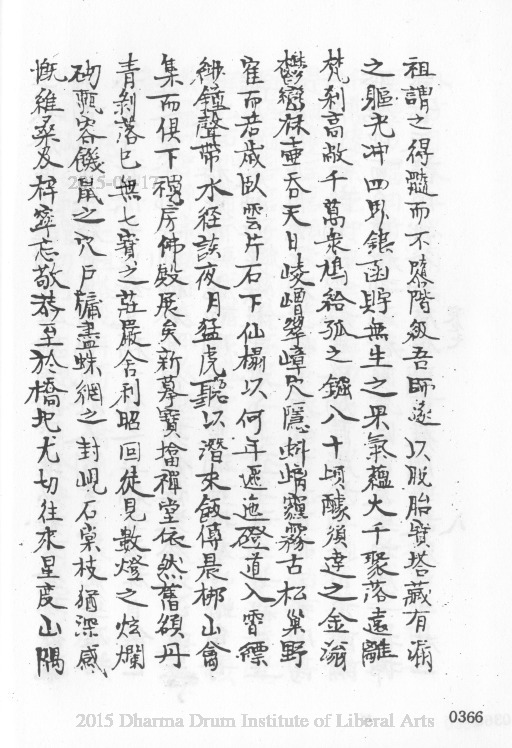 祖謂之得髓而不墮階級吾師遂以脫胎寶塔藏有漏
之軀光沖四界銀函貯無生之果氣蘊大千聚落遠離
梵刹高敞千萬衆鳩給孤之鏹八十頃醵須達之金滃
鬱鸞床壷吞天日崚嶒翠嶂只隱蚪崤霾霧古松巢野
寉而若歲臥雲片石下仙榻以何年邐迤磴道入霄縹
緲鐘聲帶水径談夜月猛虎聽以潛來飯傳晨梆山禽
集而俱下禪房佛殿展矣新摹寶擋禪堂依然舊頟丹
青剥落已無七寶之莊嚴舍利昭回徒見數燈之炫爛
砌甎容饑鼠之穴戶牖盡蛛網之封峴石棠枝猶深感
慨維桑及梓寧忘敬恭至於橋圯尤切往來星度山隅
2015-04-17
2015 Dharma Drum Institute of Liberal Arts
0366